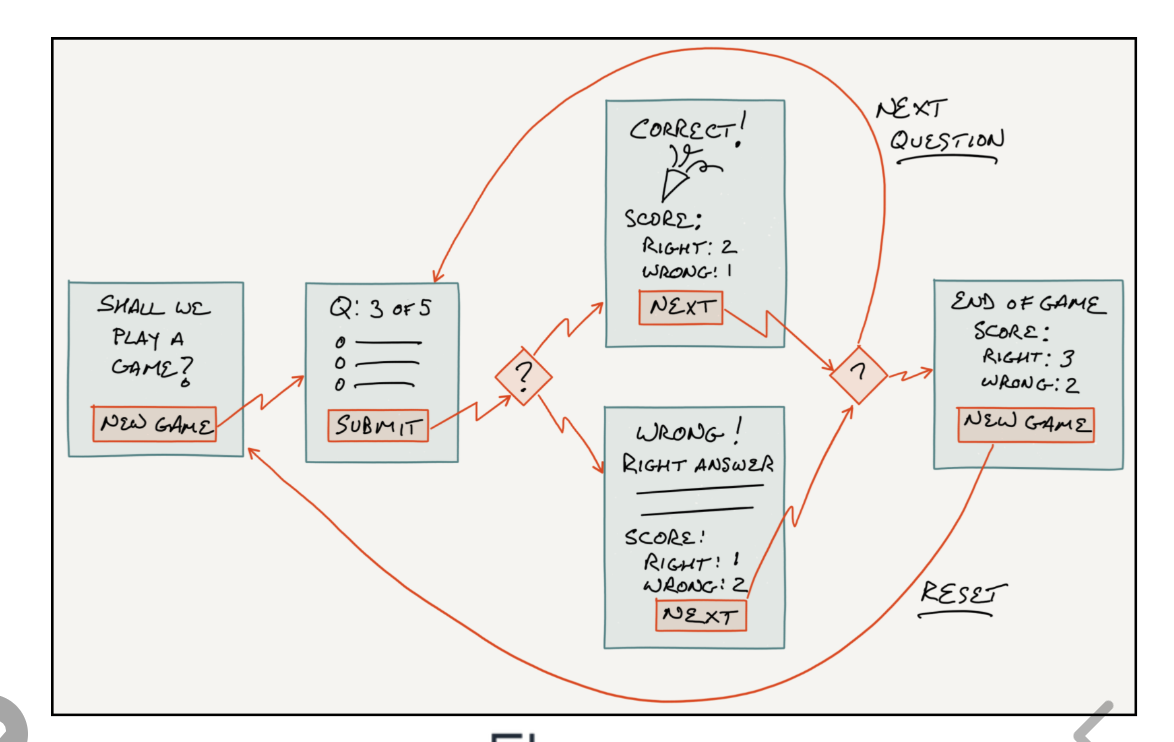 SHALL WE
PLAY A
GAME?
NEW GAME
Q: 3 OF 5
SUBMIT
?
CORRECT!
SCORE:
RIGHT: 2
WRONG: 1
NEXT
WRONG!
RIGHT ANSWER
SCORE:
RIGHT: 1
WRONG: 2
NEXT
?
NEXT
QUESTION
END OF GAME
SCORE:
RIGHT: 3
WRONG: 2
NEW GAME
RESET